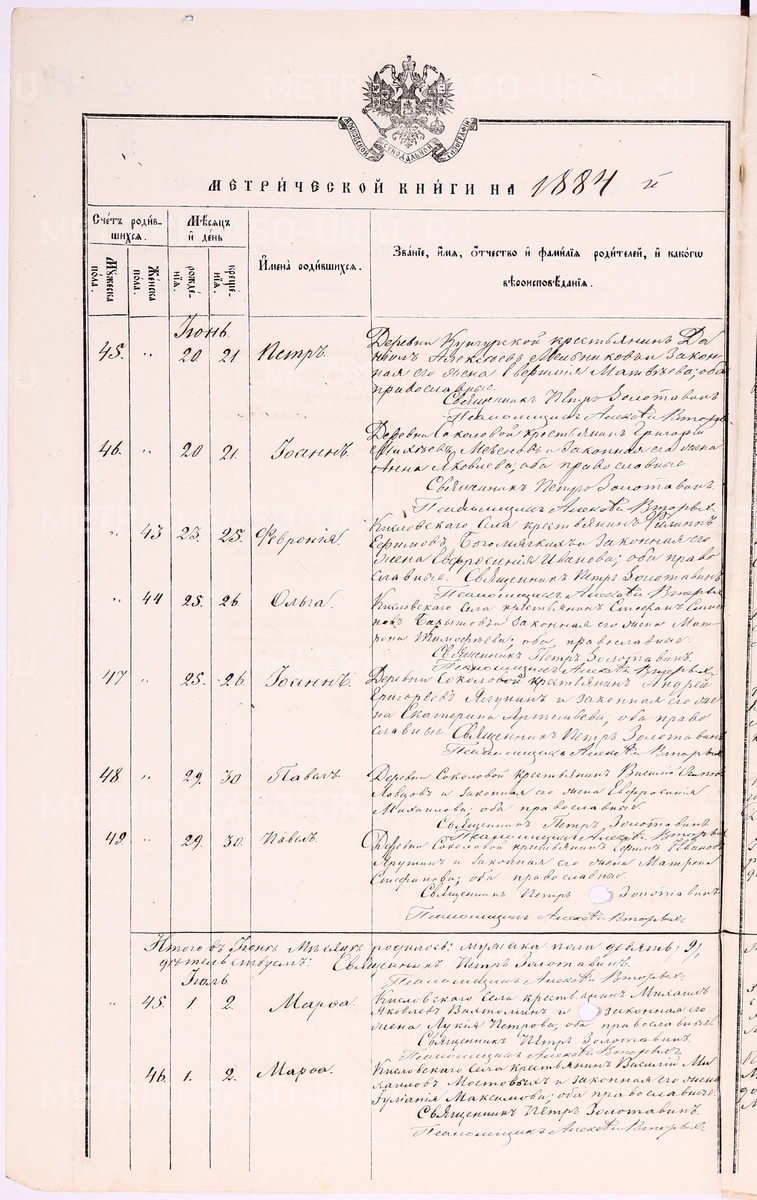 МЕТРИ́ЧЕСКОЙ КНИ́ГИ НА 1884 й
МОСКОВСКОЙ СѴНОДАЛЬНОЙ ТИПОГРАФІИ
Счетъ роди́в-
шихся.
Мѣ́сяцъ
и҆ де́нь
И҆мена̀ роди́вшихся.
Зва́нїе, и҆́мя, ѻ҆́тчество и҆ фамѝлїа роди́телей, и҆ како́гѡ
вѣроисповѣ́данїя.
Му́жеска
по́ла.
Же́нска
по́ла.
рожде́-
нїя.
креще́-
нїя.
Іюнь.
45. " 20 21 Петръ. Деревни Кунгурской крестьянинъ Да
ніилъ Алексѣевъ Мельниковъ и Закон
ная его жена Матвѣева; оба
православные.
Священникъ Петръ Золотавинъ
Псаломщикъ Алексѣй Вторыхъ
46. " 20 21. Іоаннъ. Деревни Соколовой крестьянинъ Григорій
и Законная его жена
Анна Яковлева; оба православные.
Священникъ Петръ Золотавинъ.
Псаломщикъ Алексѣй Вторыхъ.
" 43 23. 25. Ѳевронія. Кисловскаго Села крестьянинъ Филиппъ
Ефимовъ Богомягкихъ и Законная его
жена Евфросинія Иванова; оба право
славные. Священникъ Петръ Золотавинъ
Псаломщикъ Алексѣй Вторыхъ
" 44 25. 26 Ольга. Кисловскаго Села крестьянинъ Стефанъ
и Законная его жена Мат-
рона Тимофѣева; оба православные
Священникъ Петръ Золотавинъ.
Псаломщикъ Алексѣй Вторыхъ.
47 " 25. 26. Іоаннъ. Деревни Соколовой крестьянинъ Андрей
Григорьевъ Ялунинъ и законная его же
на Екатерина Артемьева; оба право
славные Священникъ Петръ Золотавинъ
Псаломщикъ Алексѣй Вторыхъ
48 " 29. 30. Павелъ. Деревни Соколовой крестьянинъ Василій
Ловцовъ и законная его жена Евфросинія
Михайлова; оба православные.
Священникъ Петръ Золотавинъ
Псаломщикъ Алексѣй Вторыхъ
49. " 29. 30. Павелъ. Деревни Соколовой крестьянинъ Ефимъ Иванов
и законная его жена Матрона
Стефанова; оба православные.
Священникъ Петръ Золотавинъ.
Псаломщикъ Алексѣй Вторыхъ.
Итого въ Іюнѣ Мѣсяцѣ родилось: мужеска пола девять, 9,
Священникъ Петръ Золотавинъ.
Псаломщикъ Алексѣй Вторыхъ.
Іюль
" 45. 1 2. Марѳа. Кисловскаго Села крестьянинъ Михаилъ
Яковлевъ и законная его
жена Лукія Петрова; оба православные.
Священникъ Петръ Золотавинъ.
Псаломщикъ Алексѣй Вторыхъ
46. 1. 2. Марѳа. Кисловскаго Села крестьянинъ Василій Ми
хайловъ Мостовыхъ и законная его жена
Іуліанія Максимова; оба православные.
Священникъ Петръ Золотавинъ.
Псаломщикъ Алексѣй Вторыхъ